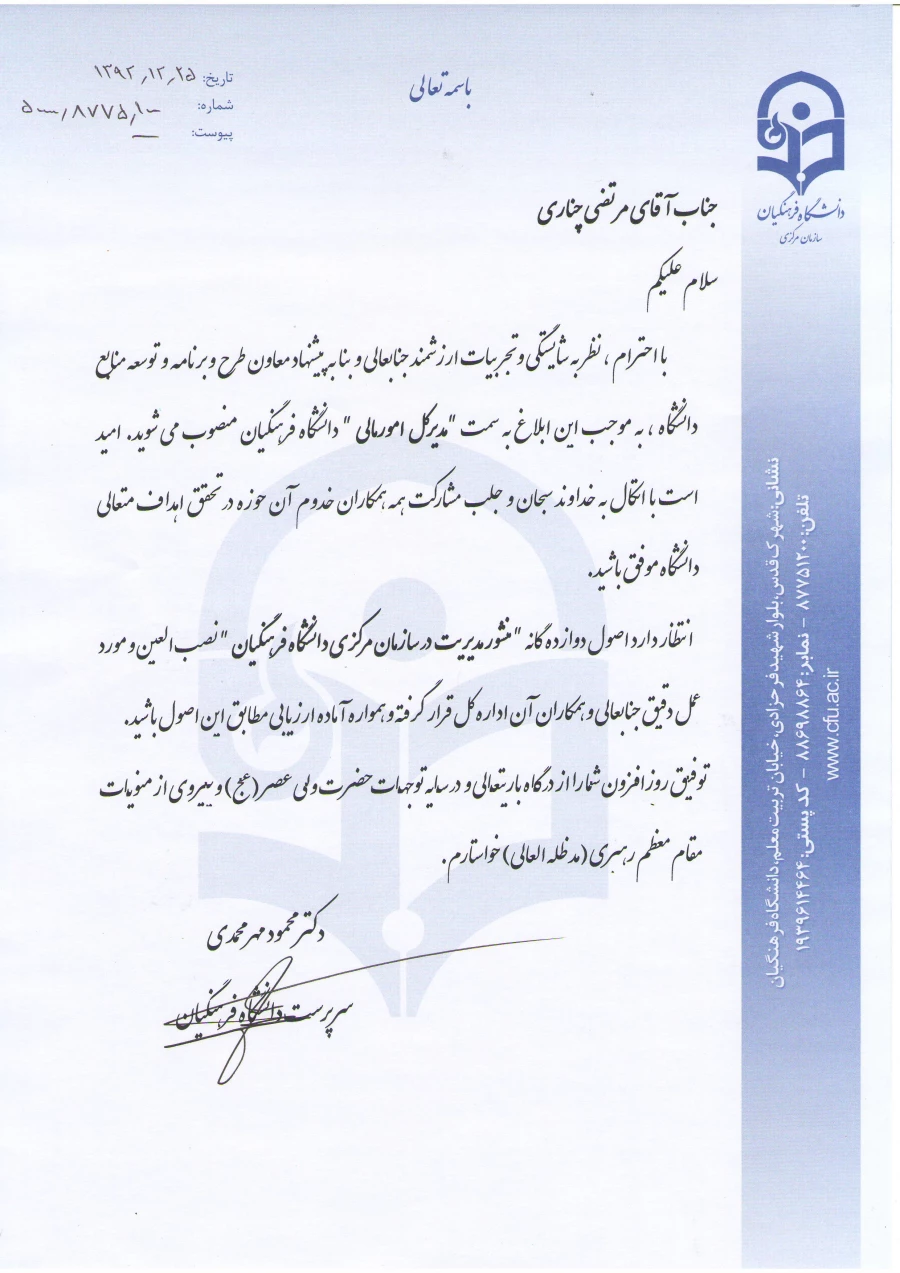 باسمه تعالی
تاریخ: ۱۳۹۲/۱۲/۲۵
شماره: ۵۰۰۰۰/۸۷۷۵/۱۰۰
پیوست: —
دانشگاه فرهنگیان
سازمان مرکزی
جناب آقای مرتضی چناری
سلام علیکم
با احترام ، نظر به شایستگی و تجربیات ارزشمند جنابعالی و بنا به پیشنهاد معاون طرح و برنامه و توسعه منابع
دانشگاه ، به موجب این ابلاغ به سمت "مدیرکل امور مالی " دانشگاه فرهنگیان منصوب می شوید. امید
است با اتکال به خداوند سبحان و جلب مشارکت همه همکاران خدوم آن حوزه در تحقق اهداف متعالی
دانشگاه موفق باشید.
انتظار دارد اصول دوازده گانه "منشور مدیریت در سازمان مرکزی دانشگاه فرهنگیان " نصب العین و مورد
عمل دقیق جنابعالی و همکاران آن اداره کل قرار گرفته و همواره آماده ارزیابی مطابق این اصول باشید.
توفیق روز افزون شما را از درگاه باریتعالی و در سایه توجهات حضرت ولی عصر(عج) و پیروی از منویات
مقام معظم رهبری (مدظله العالی) خواستارم.
دکتر محمود مهرمحمدی
سرپرست دانشگاه فرهنگیان
نشانی: شهرک قدس، بلوار شهید فرحزادی، خیابان تربیت معلم، دانشگاه فرهنگیان
تلفن: ۸۷۷۵۱۲۰۰ - نمابر: ۸۸۶۹۸۸۶۴ - کد پستی: ۱۹۳۹۶۱۴۴۶۴
www.cfu.ac.ir